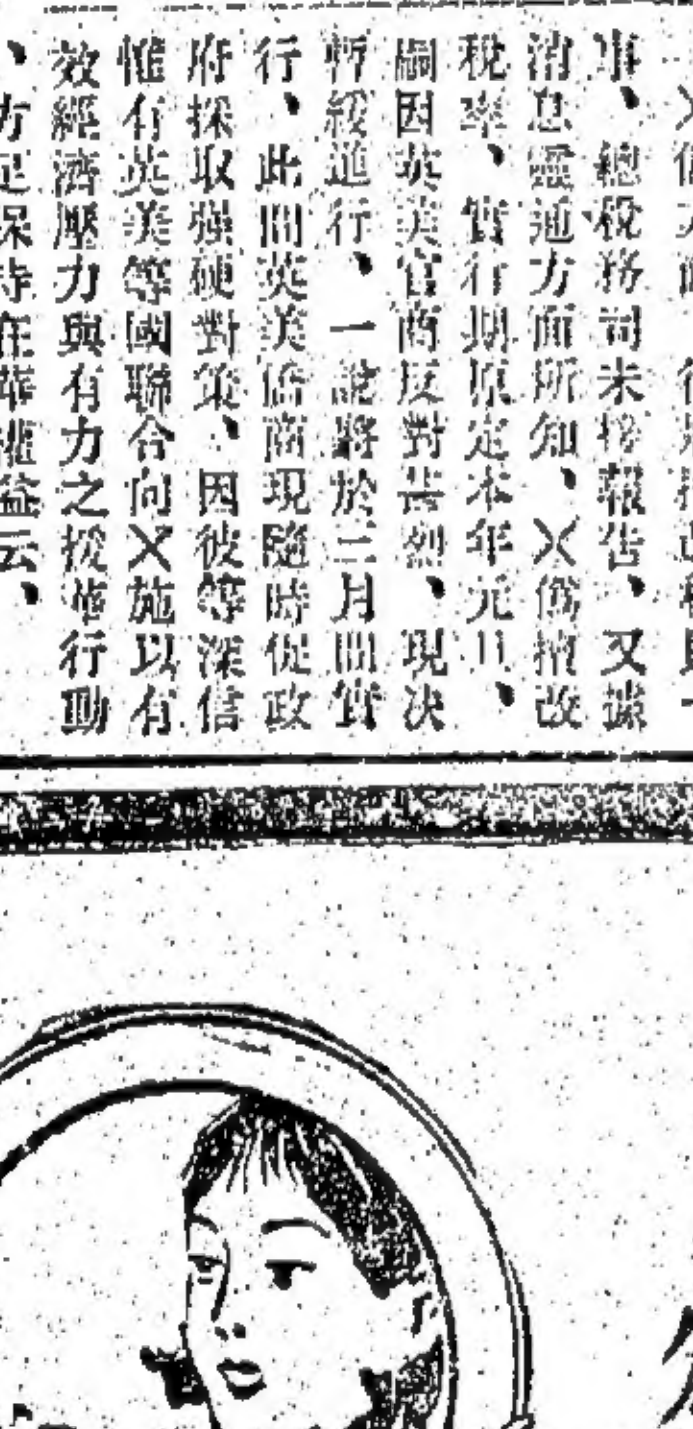 事、總稅務司未接報告、又據
消息靈通方面所知、X僞擅改
稅率、實行期原定本年元月、
嗣因英美官商反對甚烈、現决
暫緩進行、一說將於三月間實
行、此間英美僑商現隨時促政
府採取强硬對策、因彼等深信
惟有英美等國聯合向X施以有
效經濟壓力與有力之援華行動
、方足保持在華權益云、